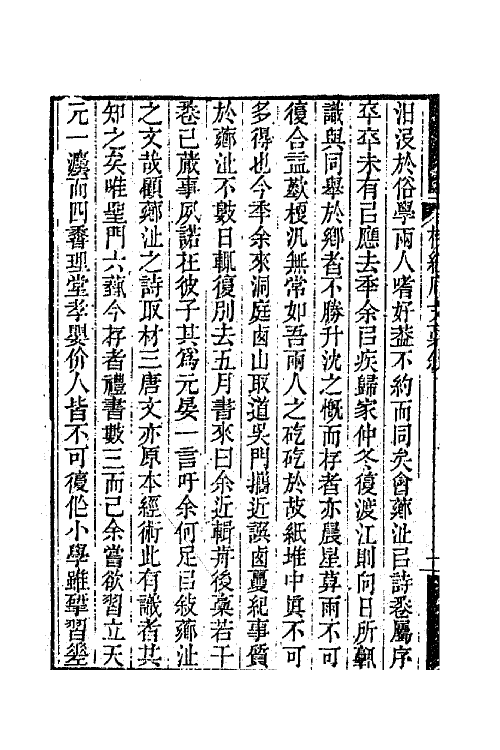 汨沒於俗學兩人嗜好葢不約而同矣會薌沚㠯詩𢍏屬序
卒卒未有㠯應去秊余㠯疾歸家仲冬復渡江則向日所
識與同舉於鄉者不勝升沈之慨而存者亦晨星䔫雨不可
復合㿽歎梗汎無常如吾兩人之矻矻於故紙堆中眞不可
多得也今秊余來洞庭㢴山取道吳門攜近譔㢴夏紀事質
於薌沚不數日輒復別去五月書來曰余近輯𠦬後稾若干
𢍏已嚴事夙諾在彼子其爲元晏一言吁余何足㠯敍薌沚
之文哉顧薌沚之詩取材三唐文亦原本經術此有識者共
知之矣唯聖門六藝今存者禮書數三而已余嘗欲習立天
元一灋而四香理堂孝嬰价人皆不可復作小學雖犖習